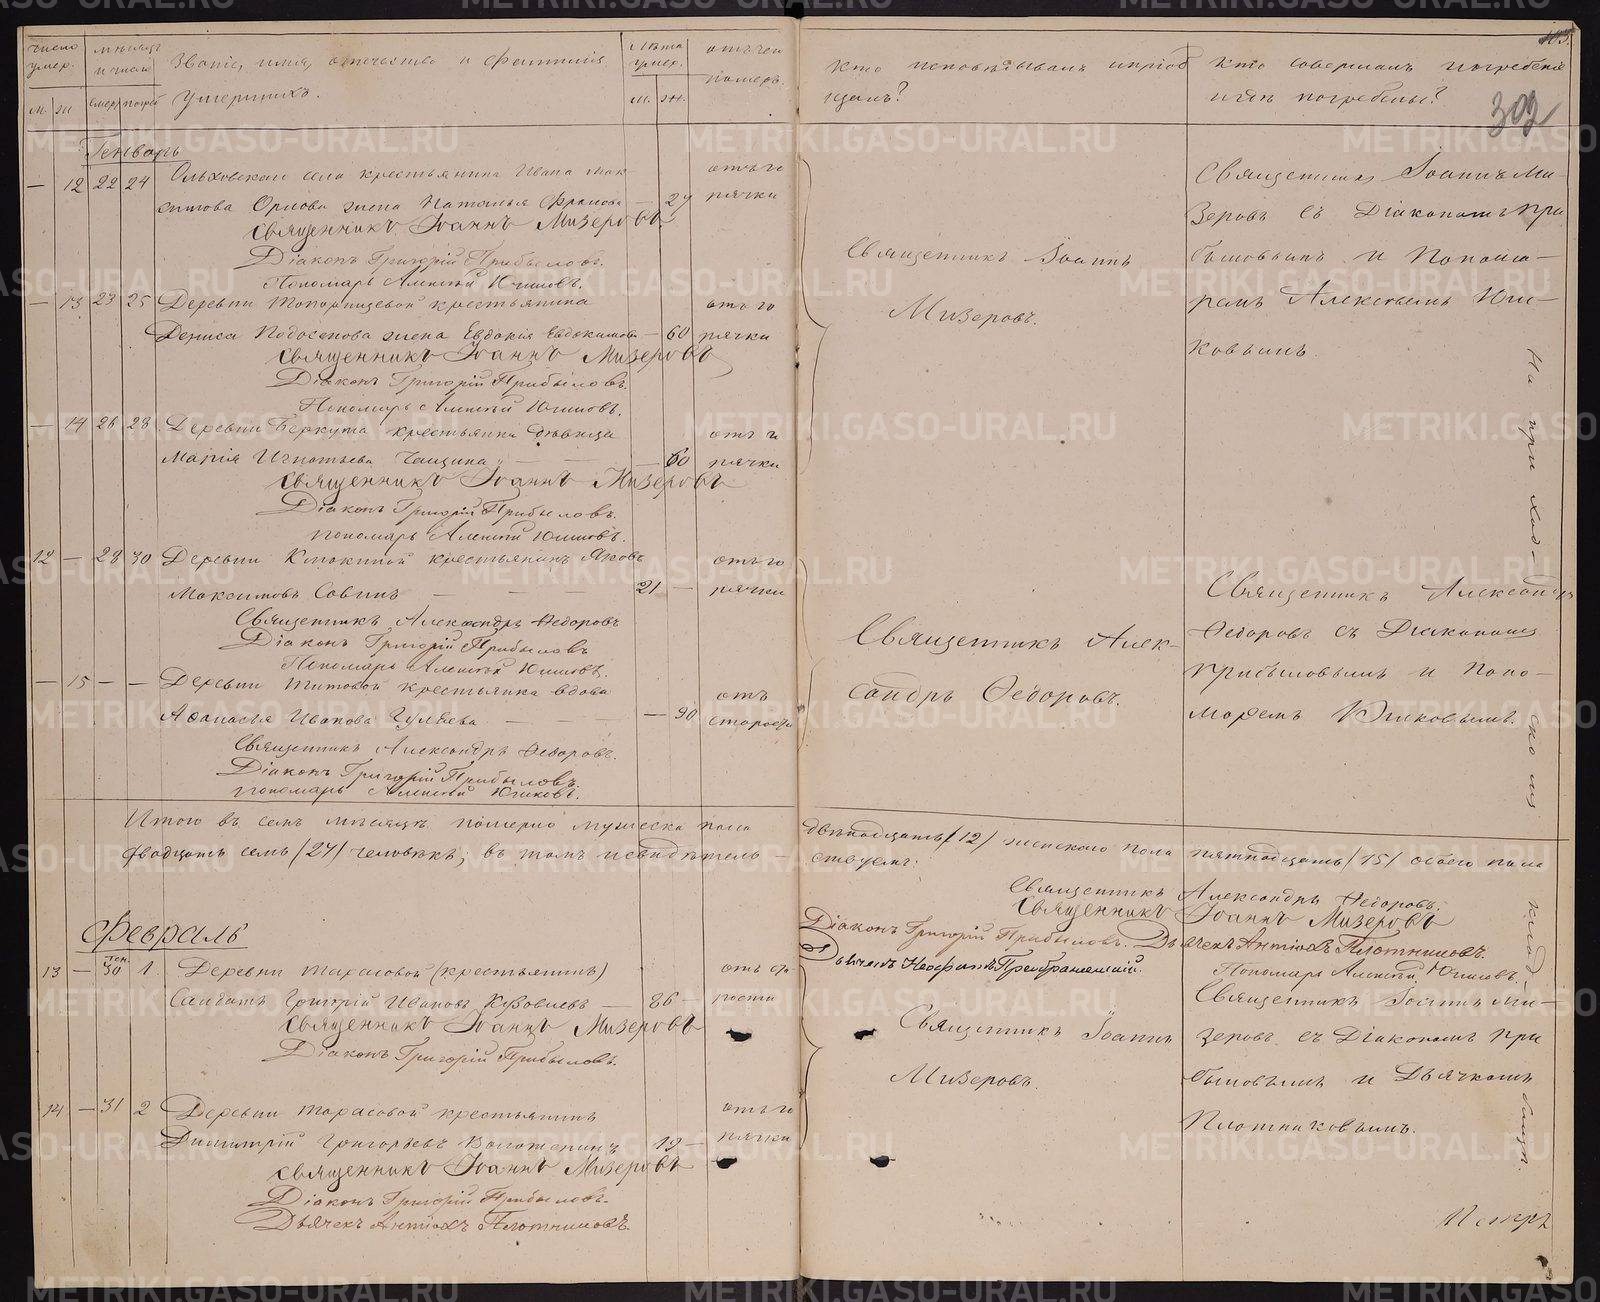 число умер.
мѣсяцъ и число
Званіе, имя, отчество и фамилія умершихъ.
Лѣта умер.
отъ чего померъ.
м. ж. смер. погреб. м. ж.
Генварь
— 12 22 24 Ольховскаго села крестьянина Ивана Мак-
симова Орлова жена Наталья — 29
отъ го
рячки
Священникъ Іоаннъ Мизеровъ.
Діаконъ Григорій Прибыловъ.
Пономарь Алексѣй Югиковъ.
— 13 23 25 Деревни крестьянина
Дениса жена Евдокія Евдокимова — 60
отъ го
рячки
Священникъ Іоаннъ Мизеровъ
Діаконъ Григорій Прибыловъ.
Пономарь Алексѣй Югиковъ.
— 14 26 28 Деревни Беркута крестьянка дѣвица
Марія Игнатьева — — — 60
отъ го
рячки
Священникъ Іоаннъ Мизеровъ
Діаконъ Григорій Прибыловъ.
пономарь Алексѣй Югиковъ.
12 — 28 30 Деревни крестьянинъ Яковъ
Максимовъ Савинъ — — — 21 —
отъ го
рячки
Священникъ Александръ Ѳедоровъ
Діаконъ Григорій Прибыловъ
Пономарь Алексѣй Югиковъ.
— 15 — — Деревни Титовой крестьянка вдова
Аѳанасья Иванова Гуляева — — 90
отъ
старости
Священникъ Александръ Ѳедоровъ.
Діаконъ Григорій Прибыловъ.
пономарь Алексѣй Югиковъ.
Итого въ семъ мѣсяцѣ померло мужеска пола
двадцать семь /27/ человѣкъ; въ томъ
Февраль
13 — Ген. 30 1 Деревни Тарасовой (крестьянинъ)
Солдатъ Григорій Ивановъ — 86 —
отъ ста
рости
Священникъ Іоаннъ Мизеровъ
Діаконъ Григорій Прибыловъ.
14 — 31 2 Деревни Тарасовой крестьянинъ
Димитрій Григорьевъ — 19 —
отъ го
рячки
Священникъ Іоаннъ Мизеровъ
Діаконъ Григорій Прибыловъ.
Дьячекъ Антіохъ Плотниковъ.
Кто исповѣдывалъ и пріоб
щалъ?
Кто совершалъ погребеніе
и гдѣ погребены?
309
Священникъ Іоаннъ
Мизеровъ.
Священникъ Іоаннъ Ми-
зеровъ съ Діакономъ При
быловымъ и Понома-
ремъ Алексѣемъ Юги-
ковымъ
Священникъ Алек-
сандръ Ѳедоровъ.
Священникъ Александръ
Ѳедоровъ съ Діакономъ
Прибыловымъ и Поно-
моремъ Югиковымъ.
двѣнадцать /12/ женского пола пятнадцать /15/ обоего пола
Священникъ Александръ Ѳедоровъ.
Священникъ Іоаннъ Мизеровъ
Діаконъ Григорій Прибыловъ. Дьячекъ Антіохъ Плотниковъ.
Дьячекъ Неофитъ Преображенскій.
Пономарь Алексѣй Югиковъ.
Священникъ Іоаннъ
Мизеровъ.
Священникъ Іоаннъ Ми-
зеровъ съ Діакономъ При
быловымъ и Дьячкомъ
Плотниковымъ.
На приходскомъ кладбищѣ.
METRIKI.GASO-URAL.RU